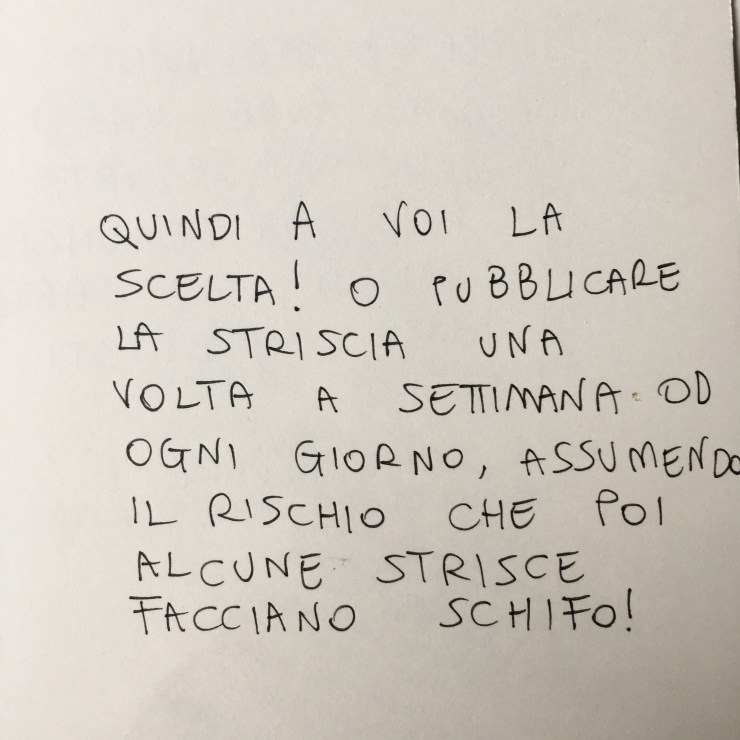 QUINDI A VOI LA
SCELTA! O PUBBLICARE
LA STRISCIA UNA
VOLTA A SETTIMANA OD
OGNI GIORNO, ASSUMENDO
IL RISCHIO CHE POI
ALCUNE STRISCE
FACCIANO SCHIFO!